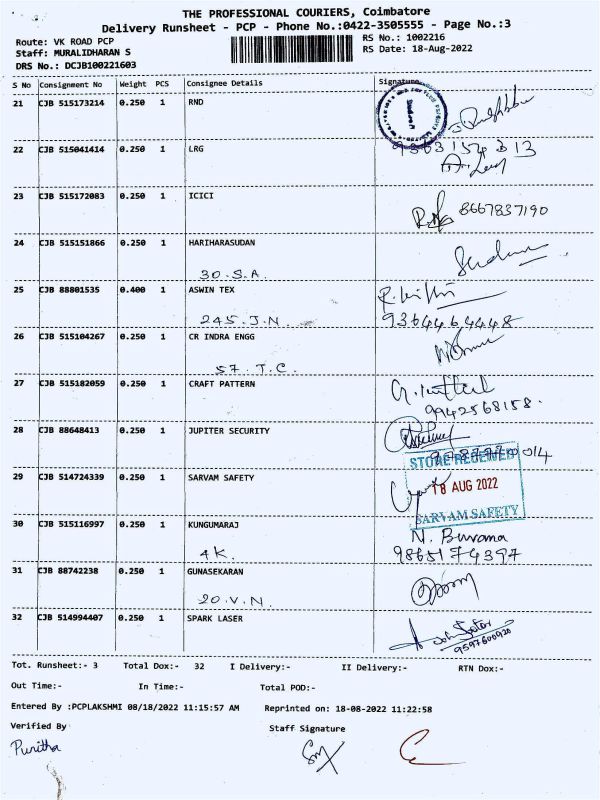 THE PROFESSIONAL COURIERS, Coimbatore
Delivery Runsheet - PCP - Phone No.:0422-3505555 - Page No.:3
Route: VK ROAD PCP
Staff: MURALIDHARAN S
DRS No.: DCJB100221603
RS No.: 1002216
RS Date: 18-Aug-2022
S No Consignment No Weight PCS Consignee Details Signature
21 CJB 515173214 0.250 1 RND
22 CJB 515041414 0.250 1 LRG
23 CJB 515172083 0.250 1 ICICI
8667837190
24 CJB 515151866 0.250 1 HARIHARASUDAN
30.S.A.
25 CJB 88801535 0.400 1 ASWIN TEX
245.J.N.
9364464448
26 CJB 515104267 0.250 1 CR INDRA ENGG
57.T.C.
27 CJB 515182059 0.250 1 CRAFT PATTERN
9942568158.
28 CJB 88648413 0.250 1 JUPITER SECURITY
STORE RECEIVED
29 CJB 514724339 0.250 1 SARVAM SAFETY
18 AUG 2022
SARVAM SAFETY
30 CJB 515116997 0.250 1 KUNGUMARAJ
4K.
9865174397
31 CJB 88742238 0.250 1 GUNASEKARAN
20.V.N.
32 CJB 514994407 0.250 1 SPARK LASER
9597600920
Tot. Runsheet:- 3 Total Dox:- 32 I Delivery:- II Delivery:- RTN Dox:-
Out Time:- In Time:- Total POD:-
Entered By :PCPLAKSHMI 08/18/2022 11:15:57 AM Reprinted on: 18-08-2022 11:22:58
Verified By Staff Signature
Punitha